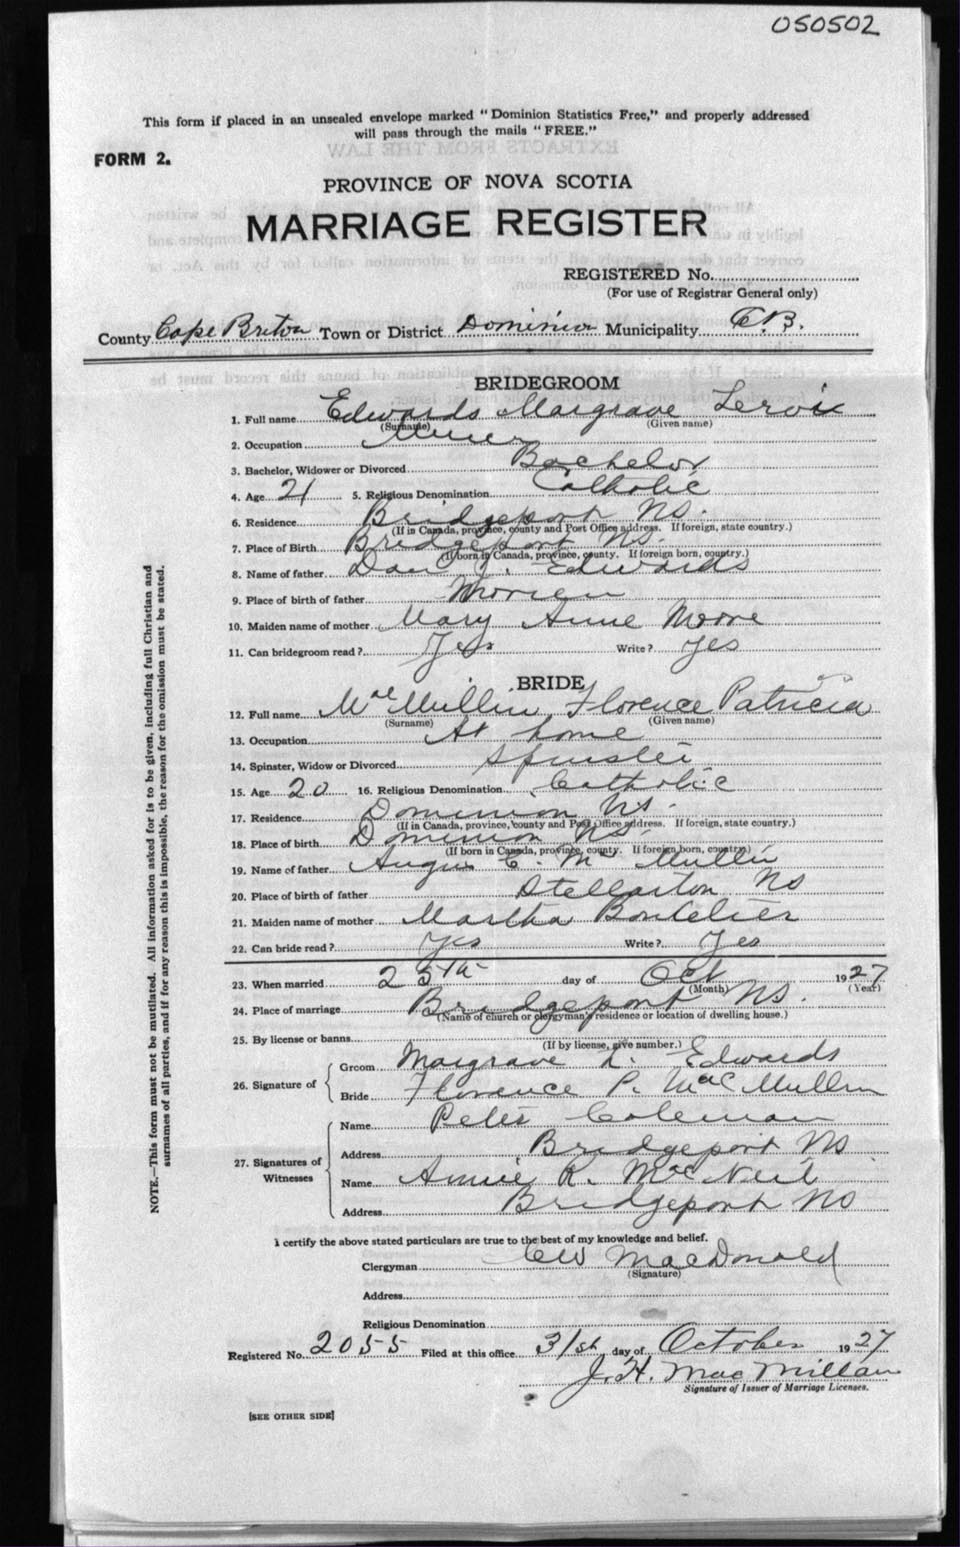 050502
This form if placed in an unsealed envelope marked "Dominion Statistics Free," and properly addressed
will pass through the mails "FREE."
FORM 2.
PROVINCE OF NOVA SCOTIA
MARRIAGE REGISTER
REGISTERED No.
(For use of Registrar General only)
County Cape Breton Town or District Dominion Municipality C.B.
BRIDEGROOM
1. Full name Edwards Margrave Leroix
(Surname) (Given name)
2. Occupation Miner
3. Bachelor, Widower or Divorced Bachelor
4. Age 21 5. Religious Denomination Catholic
6. Residence Bridgeport NS.
(If in Canada, province, county and Post Office address. If foreign, state country.)
7. Place of Birth Bridgeport NS.
(If born in Canada, province, county. If foreign born, country.)
8. Name of father Dan J. Edwards
9. Place of birth of father Morien
10. Maiden name of mother Mary Anne Moore
11. Can bridegroom read? Yes Write? Yes
BRIDE
12. Full name MacMullin Florence Patricia
(Surname) (Given name)
13. Occupation At home
14. Spinster, Widow or Divorced Spinster
15. Age 20 16. Religious Denomination Catholic
17. Residence Dominion NS.
(If in Canada, province, county and Post Office address. If foreign, state country.)
18. Place of birth Dominion NS.
(If born in Canada, province, county. If foreign born, country)
19. Name of father Angus C. Mc Mullin
20. Place of birth of father Stellarton NS
21. Maiden name of mother Martha Boutelier
22. Can bride read? Yes Write? Yes
23. When married 25th day of Oct 1927
(Month) (Year)
24. Place of marriage Bridgeport NS.
(Name of church or clergyman's residence or location of dwelling house.)
25. By license or banns
(If by license, give number.)
26. Signature of Groom Margrave L. Edwards
Bride Florence P. MacMullin
27. Signatures of Witnesses
Name Peter Coleman
Address Bridgeport NS
Name Annie R. MacNeil
Address Bridgeport NS
I certify the above stated particulars are true to the best of my knowledge and belief.
Clergyman CW MacDonald
(Signature)
Address
Religious Denomination
Registered No. 2055 Filed at this office 31st day of October 1927
J. H. MacMillan
Signature of Issuer of Marriage Licenses.
[SEE OTHER SIDE]
NOTE.—This form must not be mutilated. All information asked for is to be given, including full Christian and
surnames of all parties, and if for any reason this is impossible, the reason for the omission must be stated.